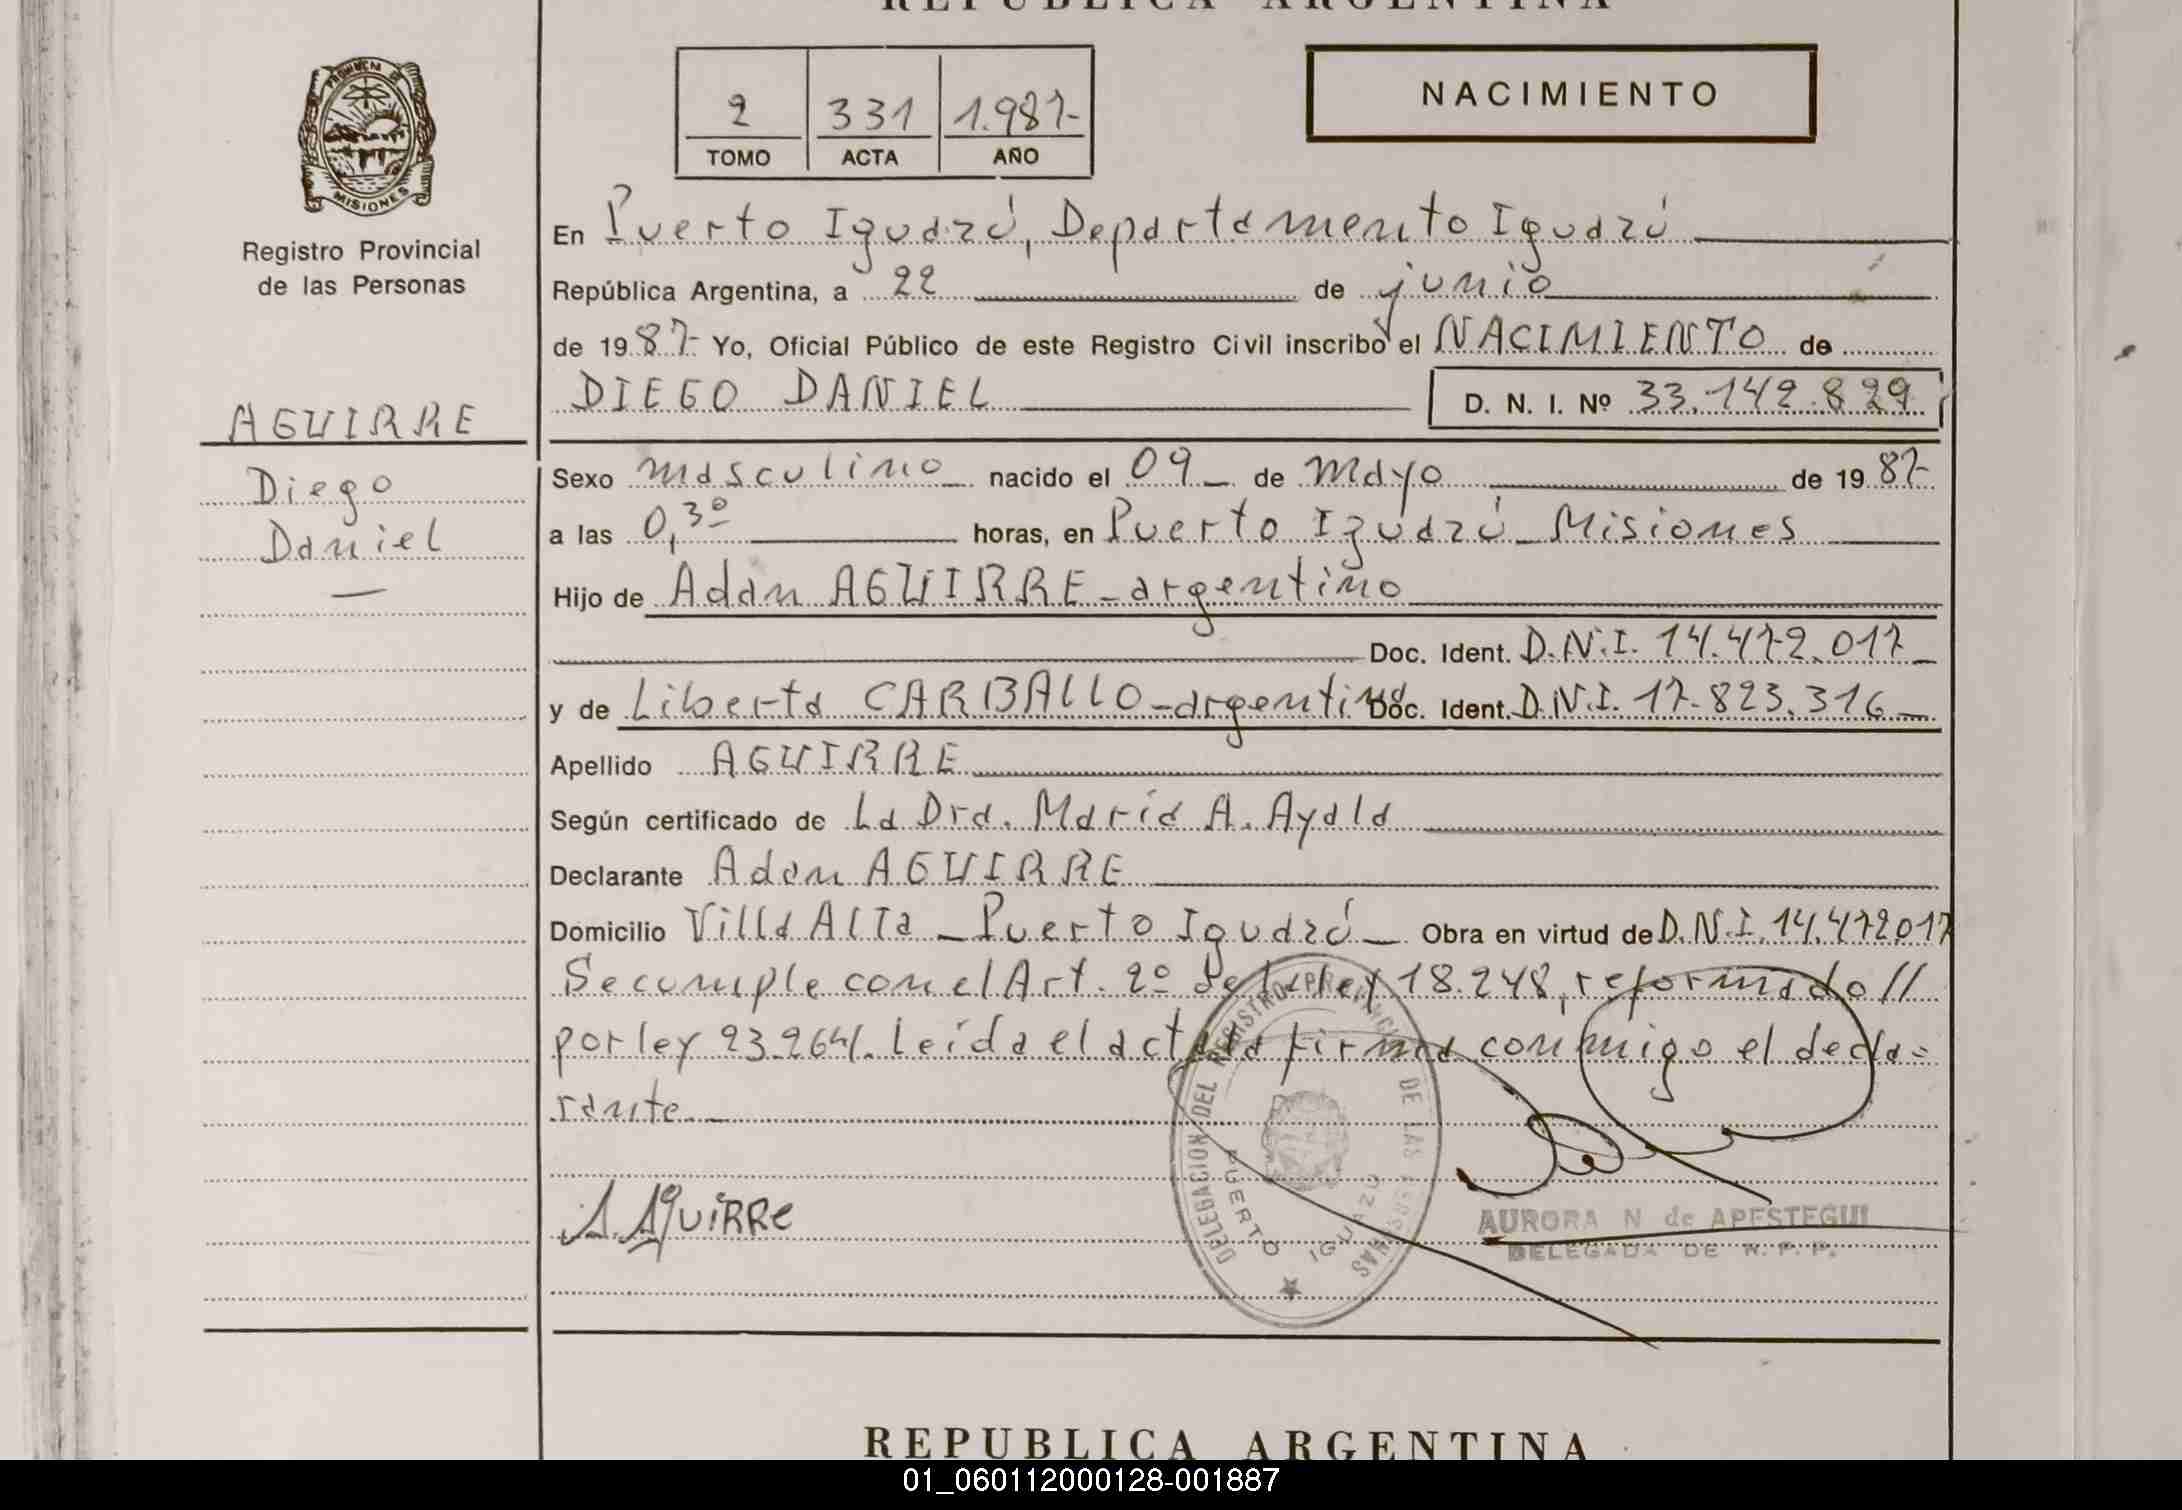 REPUBLICA ARGENTINA
PROVINCIA DE
MISIONES
Registro Provincial
de las Personas
2 331 1.987-
TOMO ACTA AÑO
NACIMIENTO
En Puerto Iguazú, Departamento Iguazú
República Argentina, a 22 de junio
de 1987- Yo, Oficial Público de este Registro Civil inscribo el NACIMIENTO de
DIEGO DANIEL D. N. I. Nº 33.142.829
AGUIRRE
Diego
Daniel
Sexo masculino nacido el 09 de mayo de 1987-
a las 0,30 horas, en Puerto Iguazú - Misiones
Hijo de Adan AGUIRRE - argentino
Doc. Ident. D.N.I. 14.472.017
y de Liberta CARBALLO - argentina Doc. Ident. D.N.I. 17.823.316
Apellido AGUIRRE
Según certificado de La Dra. María A. Ayala
Declarante Adan AGUIRRE
Domicilio Villa Alta - Puerto Iguazú - Obra en virtud de D.N.I. 14.472017
Se cumple con el Art. 2º de la ley 18.248, reformado //
por ley 23.264//. Leída el acta la firma conmigo el decla=
rante. -
A. Aguirre
DELEGACION DEL REGISTRO PROVINCIAL DE LAS PERSONAS
PUERTO IGUAZU
AURORA N de APESTEGUI
DELEGADA DE R. P. P.
REPUBLICA ARGENTINA
01_060112000128-001887